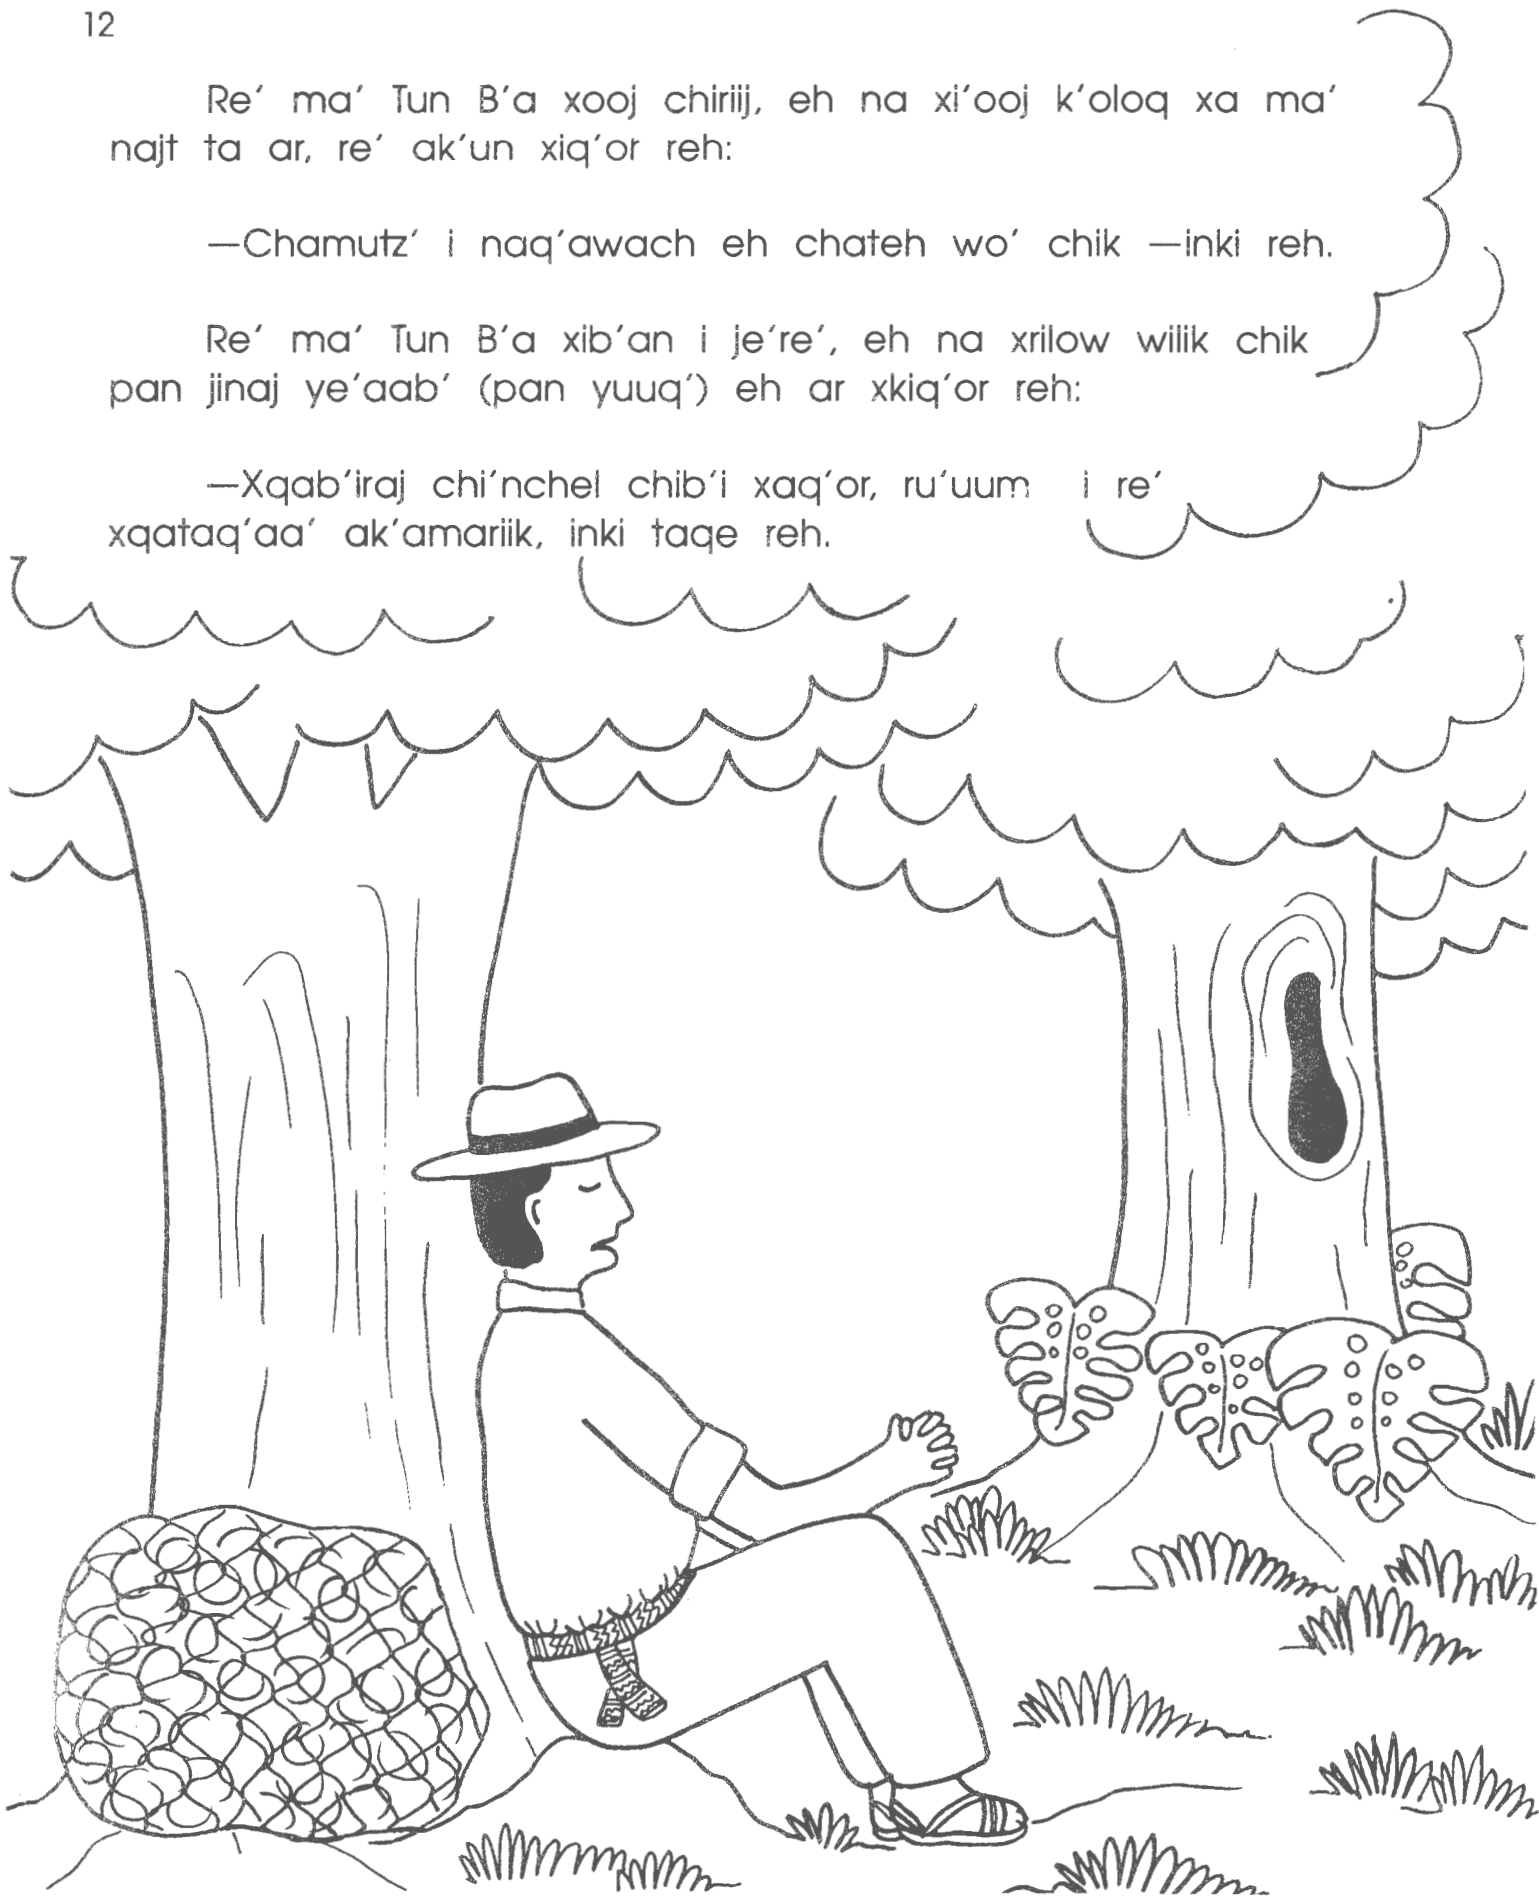 12
Re' ma' Tun B'a xooj chiriij, eh na xi'ooj k'oloq xa ma'
najt ta ar, re' ak'un xiq'or reh:
—Chamutz' i naq'awach eh chateh wo' chik —inki reh.
Re' ma' Tun B'a xib'an i je're', eh na xrilow wilik chik
pan jinaj ye'aab' (pan yuuq') eh ar xkiq'or reh:
—Xqab'iraj chi'nchel chib'i xaq'or, ru'uum i re'
xqataq'aa' ak'amariik, inki taqe reh.